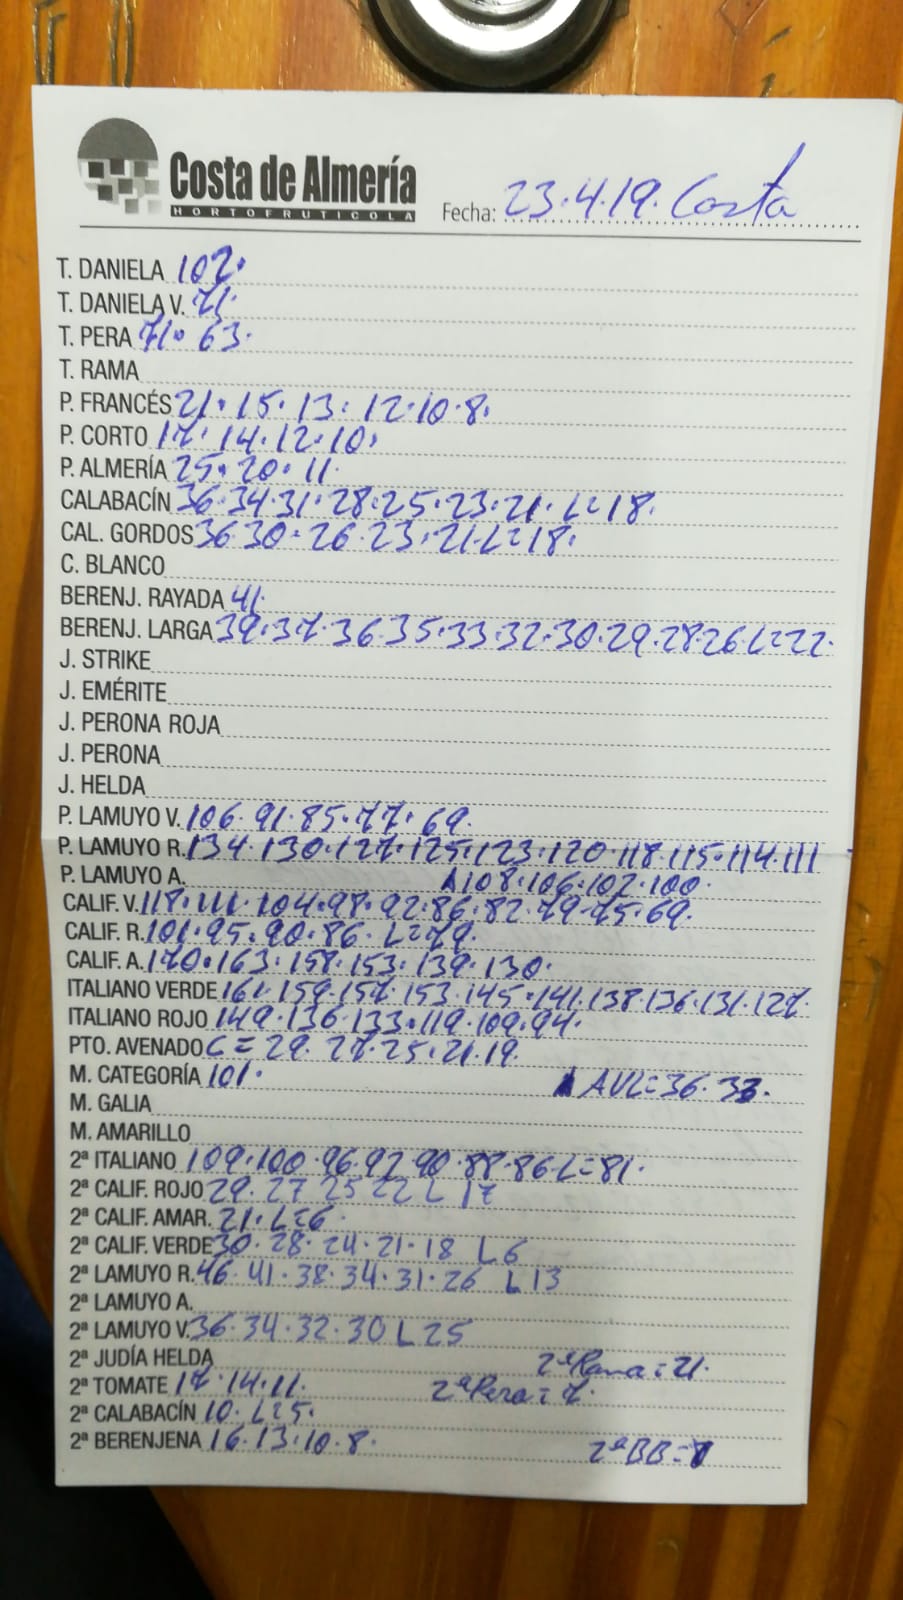 Costa de Almería
HORTOFRUTICOLA
Fecha: 23.4.19. Costa
T. DANIELA 102.
T. DANIELA V. 71.
T. PERA 71. 63.
T. RAMA
P. FRANCÉS 21. 15. 13. 12. 10. 8.
P. CORTO 17. 14. 12. 10.
P. ALMERÍA 25. 20. 11.
CALABACÍN 36. 34. 31. 28. 25. 23. 21. L=18.
CAL. GORDOS 36. 30. 26. 23. 21. L=18.
C. BLANCO
BERENJ. RAYADA 41.
BERENJ. LARGA 39. 37. 36. 35. 33. 32. 30. 29. 28. 26. L=22.
J. STRIKE
J. EMÉRITE
J. PERONA ROJA
J. PERONA
J. HELDA
P. LAMUYO V. 106. 91. 85. 77. 69.
P. LAMUYO R. 134. 130. 127. 125. 123. 120. 118. 115. 114. 111
P. LAMUYO A. 108. 106. 102. 100.
CALIF. V. 118. 111. 104. 98. 92. 86. 82. 79. 75. 69.
CALIF. R. 101. 95. 90. 86. L=79.
CALIF. A. 170. 163. 158. 153. 139. 130.
ITALIANO VERDE 161. 159. 157. 153. 145. 141. 138. 136. 131. 127.
ITALIANO ROJO 149. 136. 133. 119. 109. 94.
PTO. AVENADO C= 29. 27. 25. 21. 19.
M. CATEGORÍA 101. AVL=36. 33.
M. GALIA
M. AMARILLO
2ª ITALIANO 109. 100. 96. 92. 90. 88. 86. L=81.
2ª CALIF. ROJO 29. 27 25 22 L 17
2ª CALIF. AMAR. 21. L=6.
2ª CALIF. VERDE 30. 28. 24. 21. 18 L6
2ª LAMUYO R. 46. 41. 38. 34. 31. 26 L13
2ª LAMUYO A.
2ª LAMUYO V. 36. 34. 32. 30 L 25
2ª JUDÍA HELDA 2ª Rama = 21.
2ª TOMATE 17. 14. 11. 2ª Pera = 7.
2ª CALABACÍN 10. L=5.
2ª BERENJENA 16. 13. 10. 8. 2ª BB =